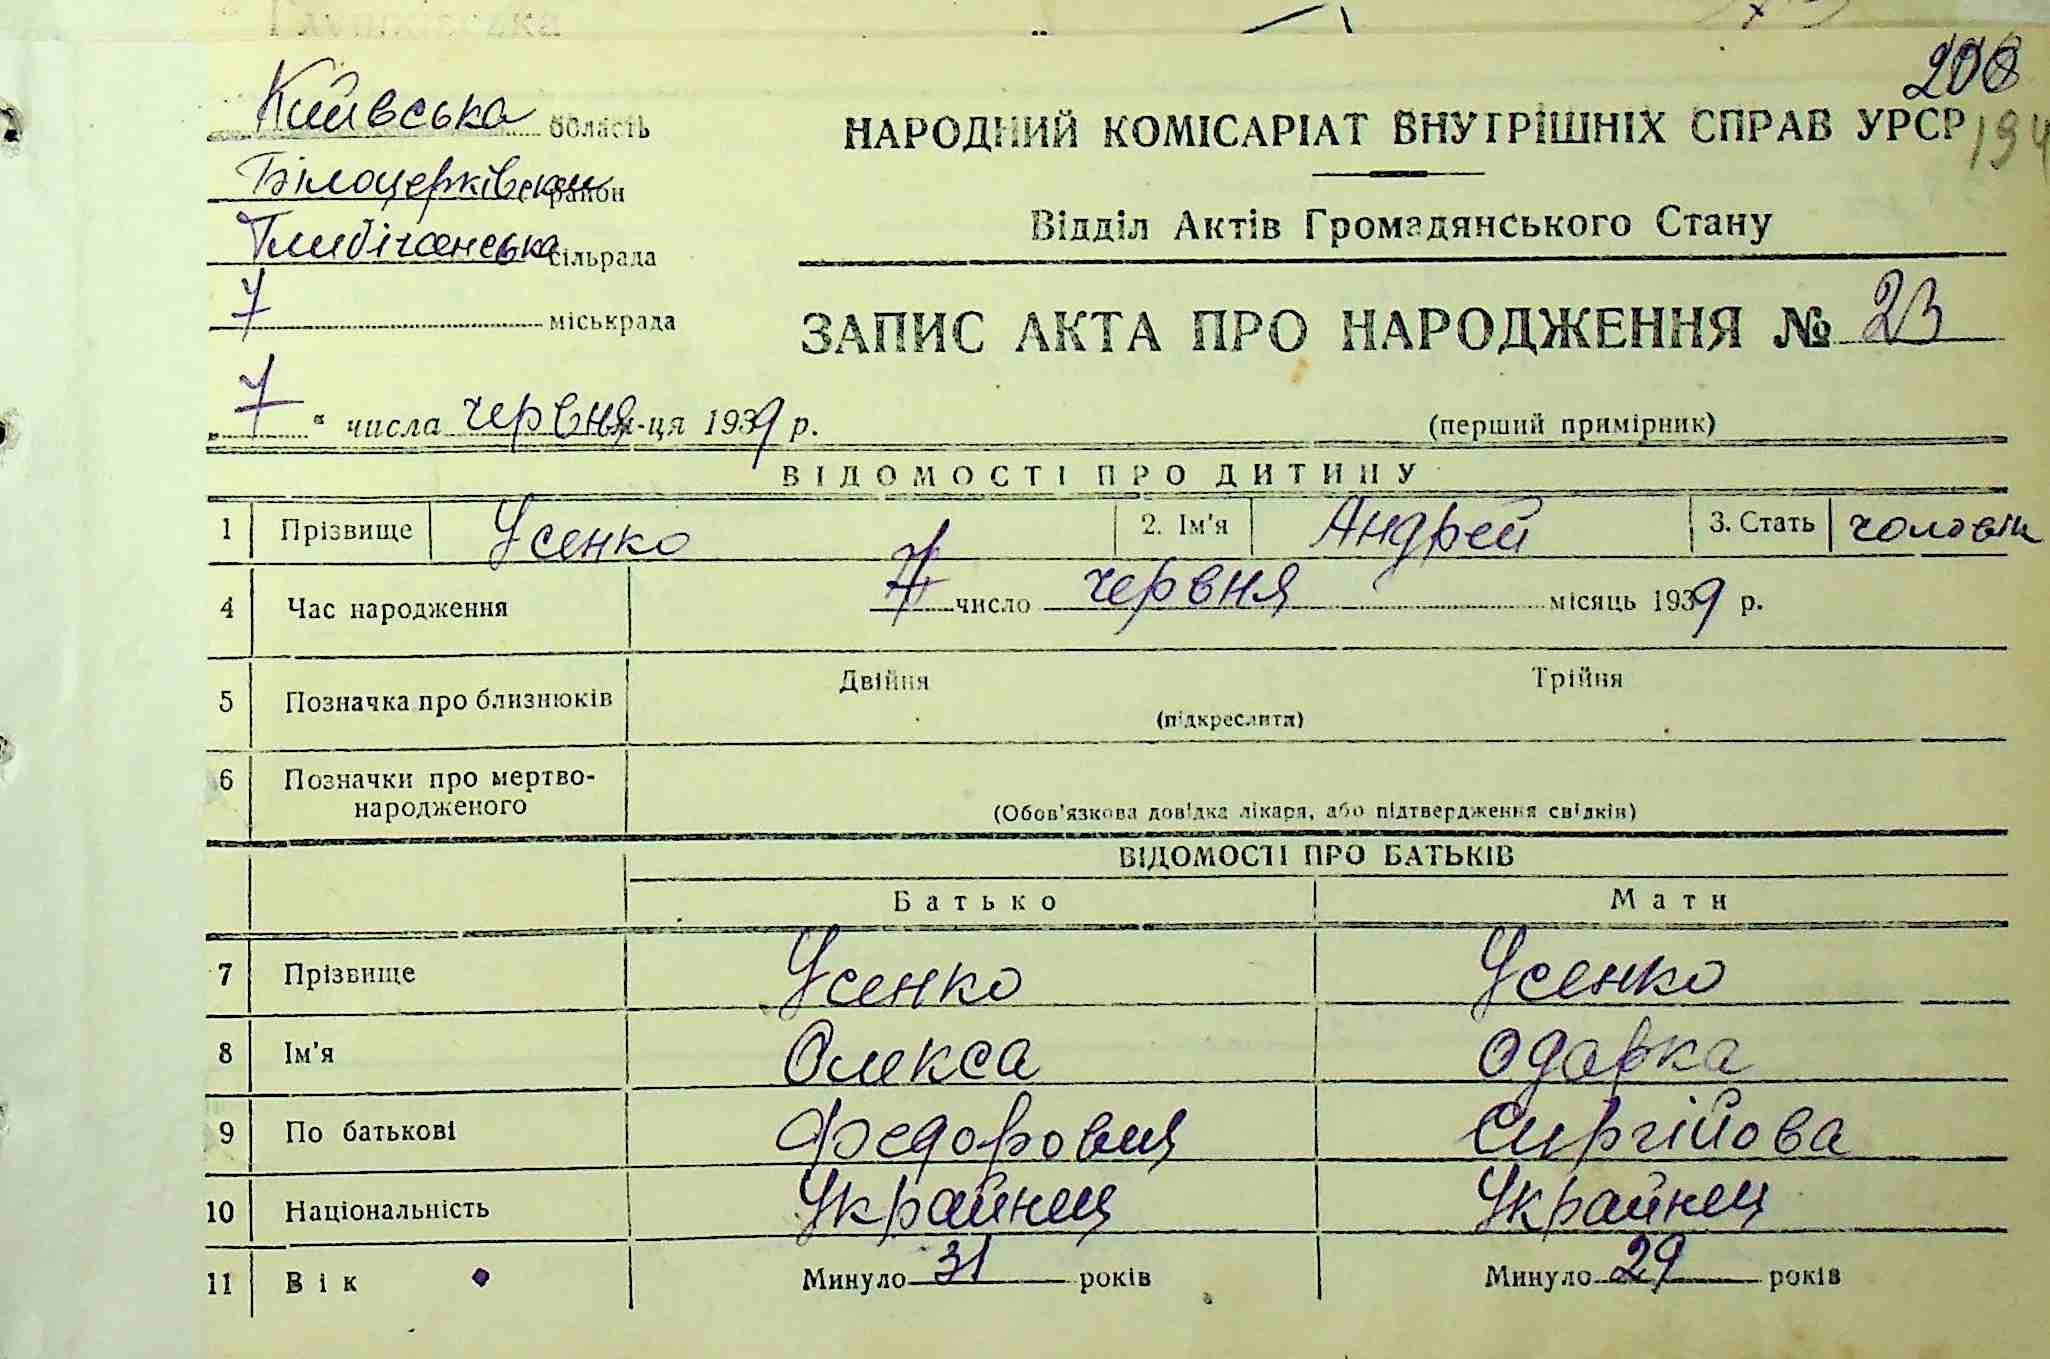 208
194
Київська область
Білоцерківськи район
Глибічанська сільрада
7 міськрада
НАРОДНИЙ КОМІСАРІАТ ВНУТРІШНІХ СПРАВ УРСР
Відділ Актів Громадянського Стану
ЗАПИС АКТА ПРО НАРОДЖЕННЯ № 23
„7“ числа червня м-ця 1939 р.
(перший примірник)
ВІДОМОСТІ ПРО ДИТИНУ
1 Прізвище Усенко 2. Ім'я Андрей 3. Стать чоловік
4 Час народження 7 число червня місяць 1939 р.
5 Позначка про близнюків Двійня Трійня
(підкреслити)
6 Позначки про мертво-
народженого
(Обов'язкова довідка лікаря, або підтвердження свідків)
ВІДОМОСТІ ПРО БАТЬКІВ
Батько Мати
7 Прізвище Усенко Усенко
8 Ім'я Олекса Одарка
9 По батькові Федорович Сиргійова
10 Національність Украйнец Украйнец
11 Вік Минуло 31 років Минуло 29 років